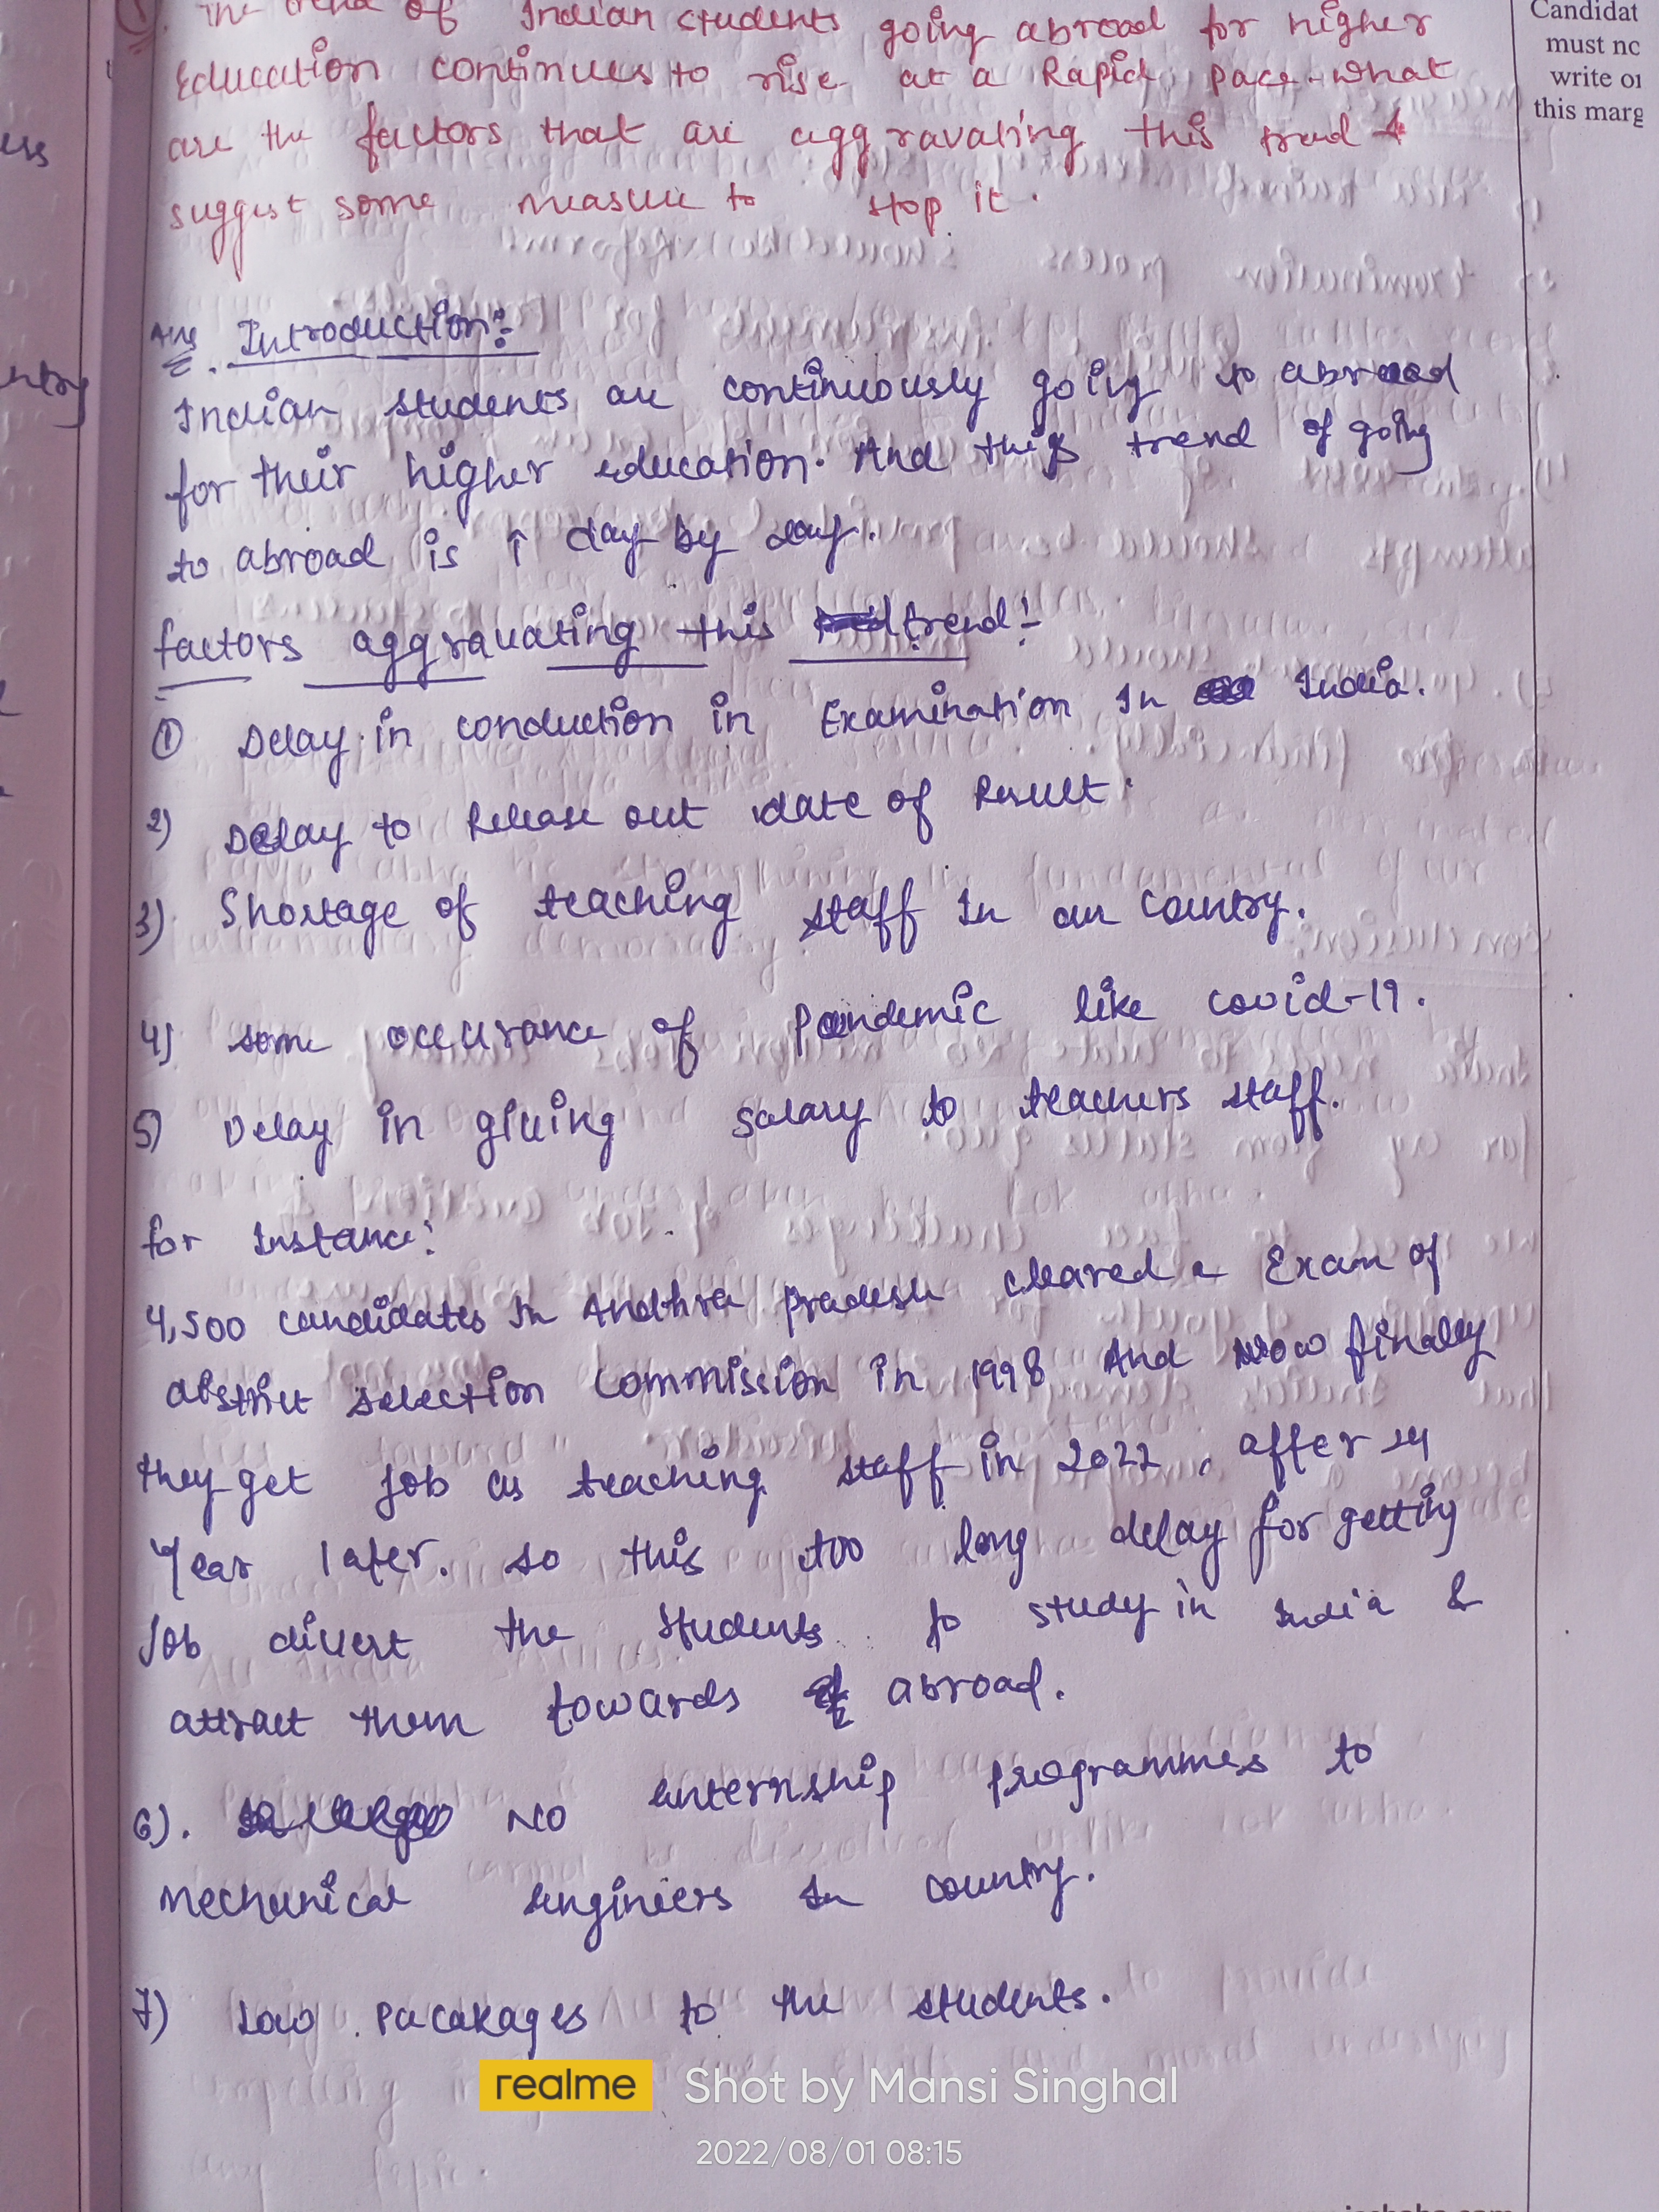 The trend of Indian students going abroad for higher
Education continues to rise at a Rapid pace. what
are the factors that are aggravating this trend &
suggest some measure to stop it.
Candidat
must no
write or
this marg
Ans Introduction:-
Indian students are continuously going to abroad
for their higher education. And this trend of going
to abroad is ↑ day by day.
factors aggravating this trend:-
① Delay in conduction in Examination In India.
2) Delay to Release out date of Result.
3) Shortage of teaching staff In our country.
4) some occurance of Pandemic like covid-19.
5) Delay in giving salary to teachers staff.
for Instance:
4,500 candidates In Andhra pradesh cleared a Exam of
district selection commission in 1998 And now finally
they get job as teaching staff in 2022, after 24
year later. so this too long delay for getting
job divert the students to study in India &
attract them towards abroad.
6). No internship programmes to
mechanical engineers In country.
7) Low pacakages to the students.
ntry
realme Shot by Mansi Singhal
2022/08/01 08:15